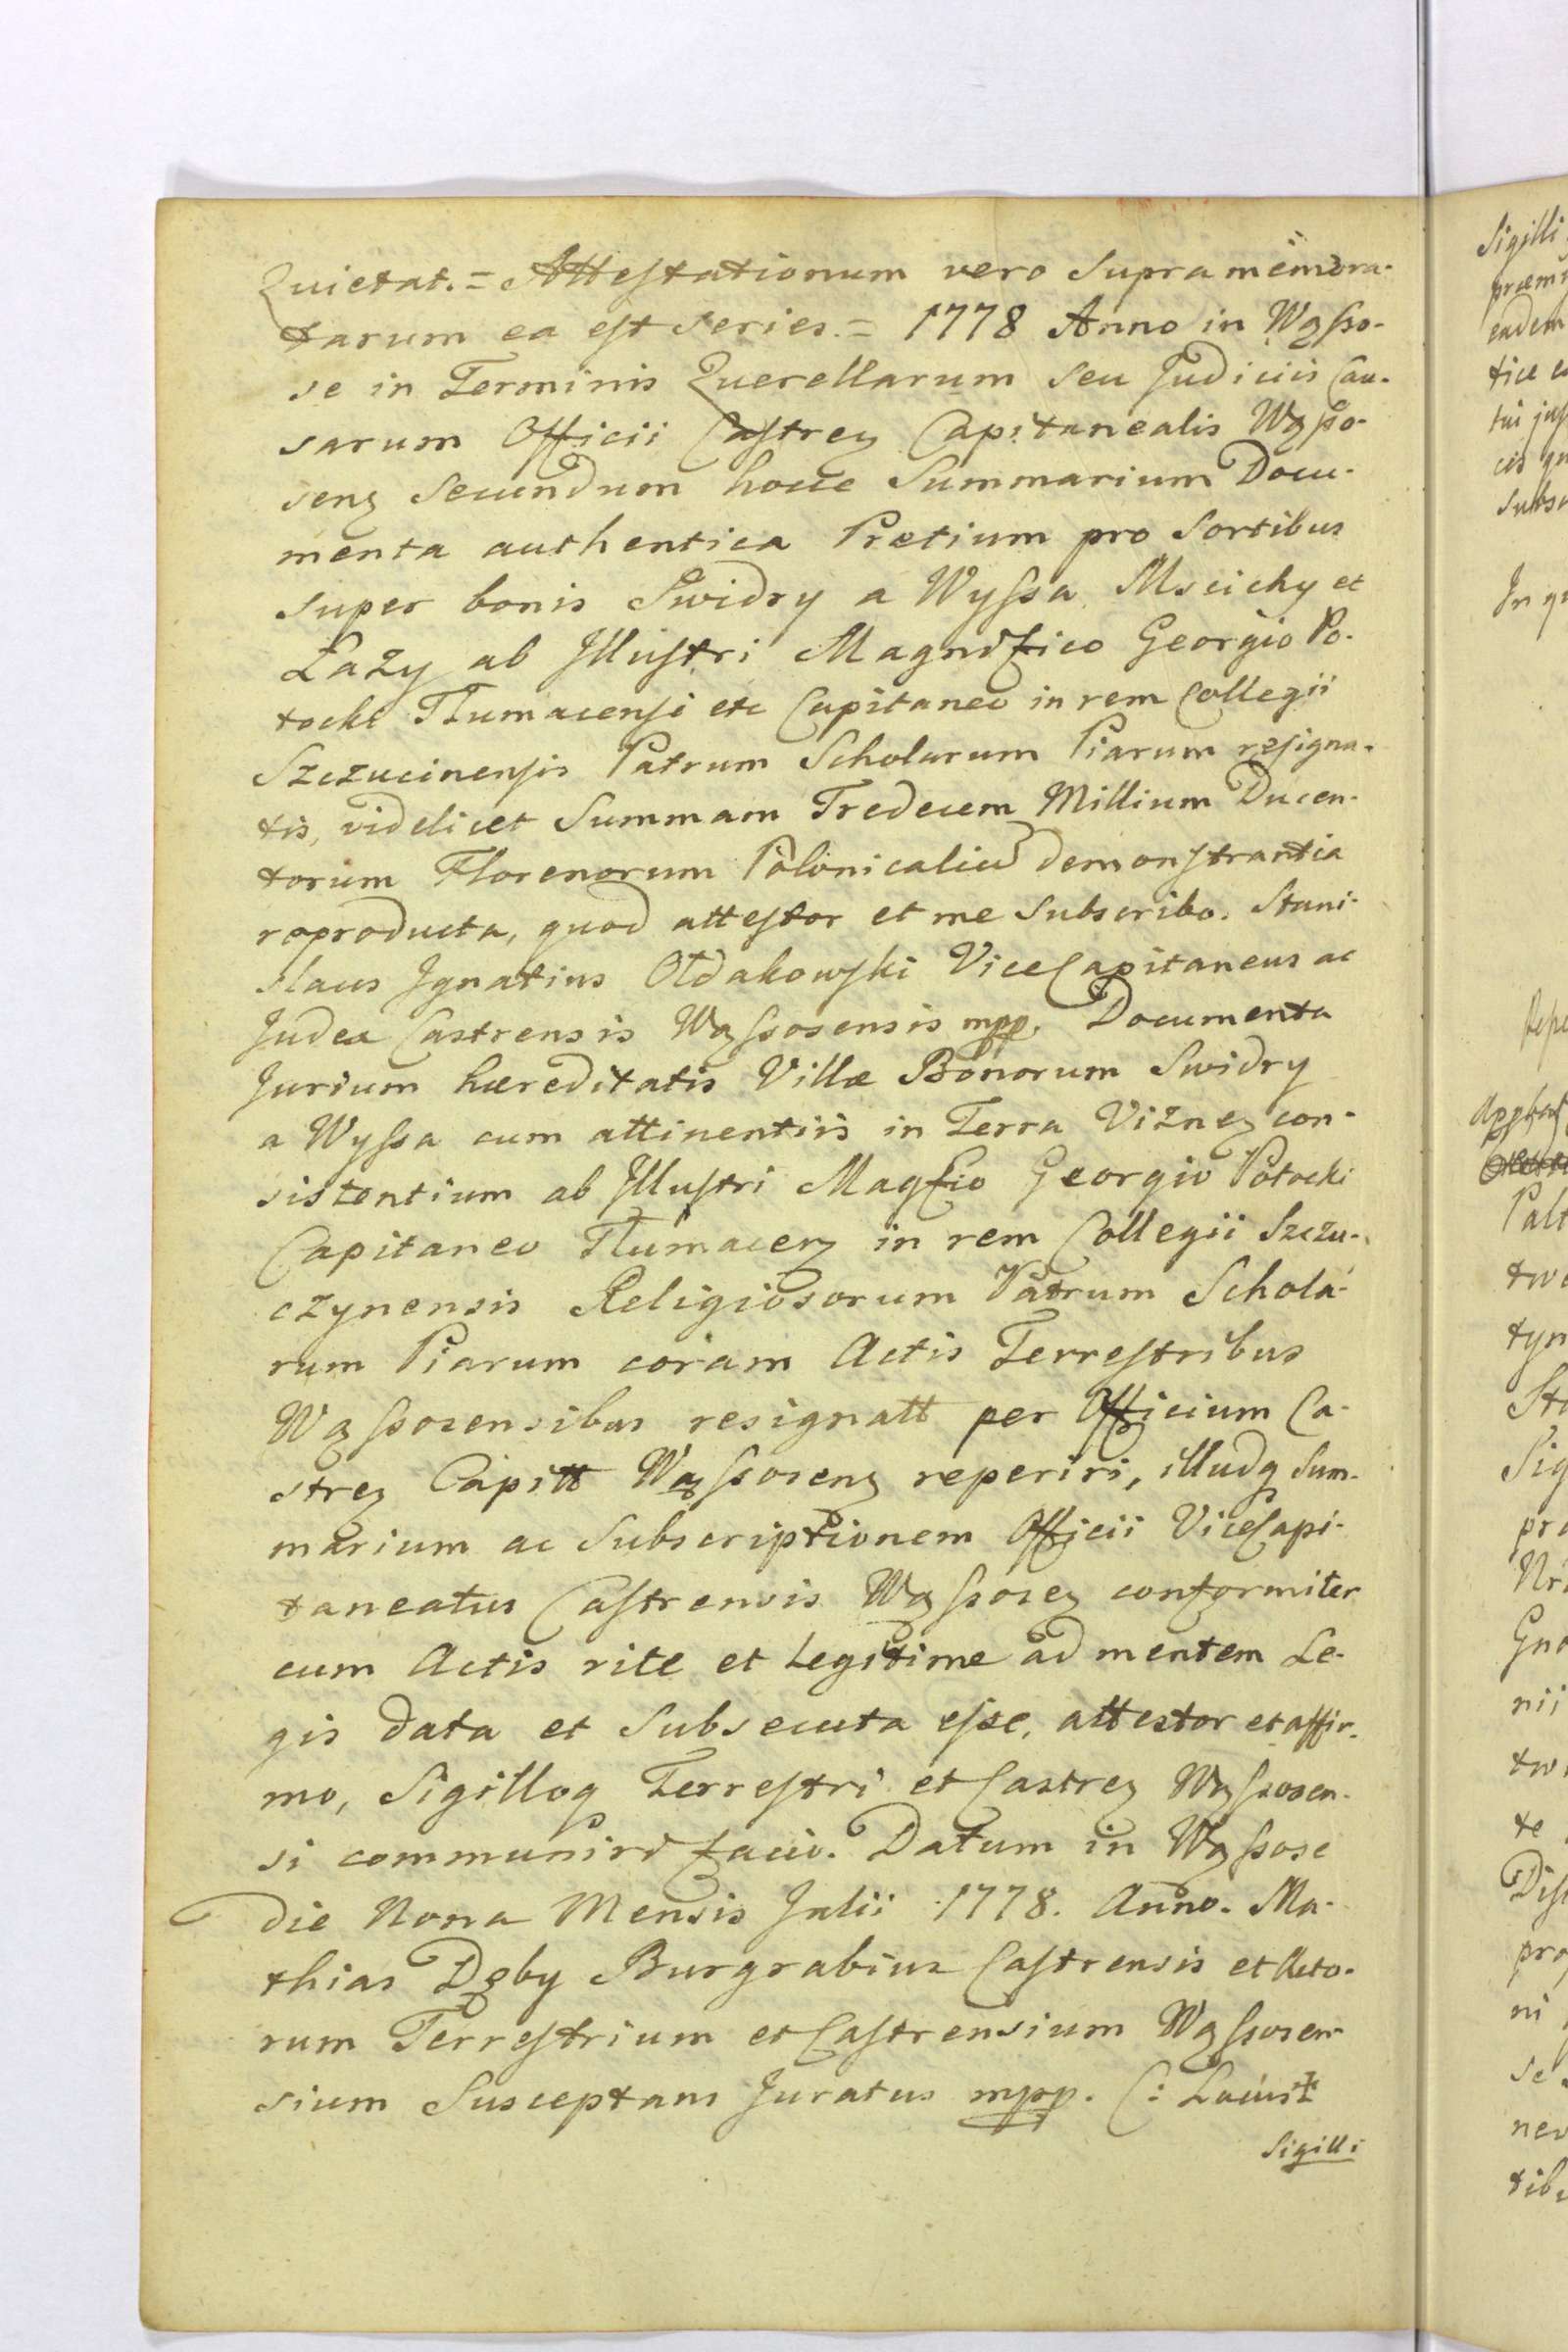 Quietat. = Attestationum vero supra memora-
tarum ea est series. = 1778 Anno in Wąsso-
se in Terminis Querellarum seu Judiciis Cau-
sarum Officii Castreń Capitanealis Wąsso-
senꝫ secundum hocce Summarium Docu-
menta authentica Pretium pro Sortibus
super bonis Swidry a Wyssa, Mscichy et
Łazy ab Illustri Magnifico Georgio Po-
tocki Tłumacensi etc Capitaneo in rem Collegii
Szczucinensis Patrum Scholarum Piarum resigna-
tis, videlicet Summam Tredecem Millium Ducen-
torum Florenorum Polonicaliu demonstrantia
reproducta, quod attestor et me subscribo. Stani-
slaus Ignatius Ołdakowski ViceCapitaneus ac
Judex Castrensis Wąssosensis mpp. Documenta
Jurium hæreditatis Villæ Bonorum Swidry
a Wyssa cum attinentiis in Terra Vizneꝫ con-
sistentium ab Illustri Magfico Georgio Potocki
Capitaneo Tłumacenꝫ in rem Collegii Szczu-
czynensis Religiosorum Patrum Schola-
rum Piarum coram Actis Terrestribus
Wąssosensibus resignatt per Officium Ca-
streꝫ Capitt Wąssosenꝫ reperiri, illudq Sum-
marium ac Subscriptionem Officii ViceCapi-
taneatus Castrensis Wąssoseꝫ conformiter
cum Actis rite et legitime ad mentem Le-
gis data et subsecuta esse, attestor et affir-
mo, Sigilloq Terrestri et Castreꝫ Wąssosen-
si communiri facio. Datum in Wąssose
die Nona Mensis Julii 1778. Anno. Ma-
thias Dęby Burgrabius Castrensis et Acto-
rum Terrestrium et Castrensium Wąssosen-
sium Susceptans Juratus mpp. (: Locus
Sigilli